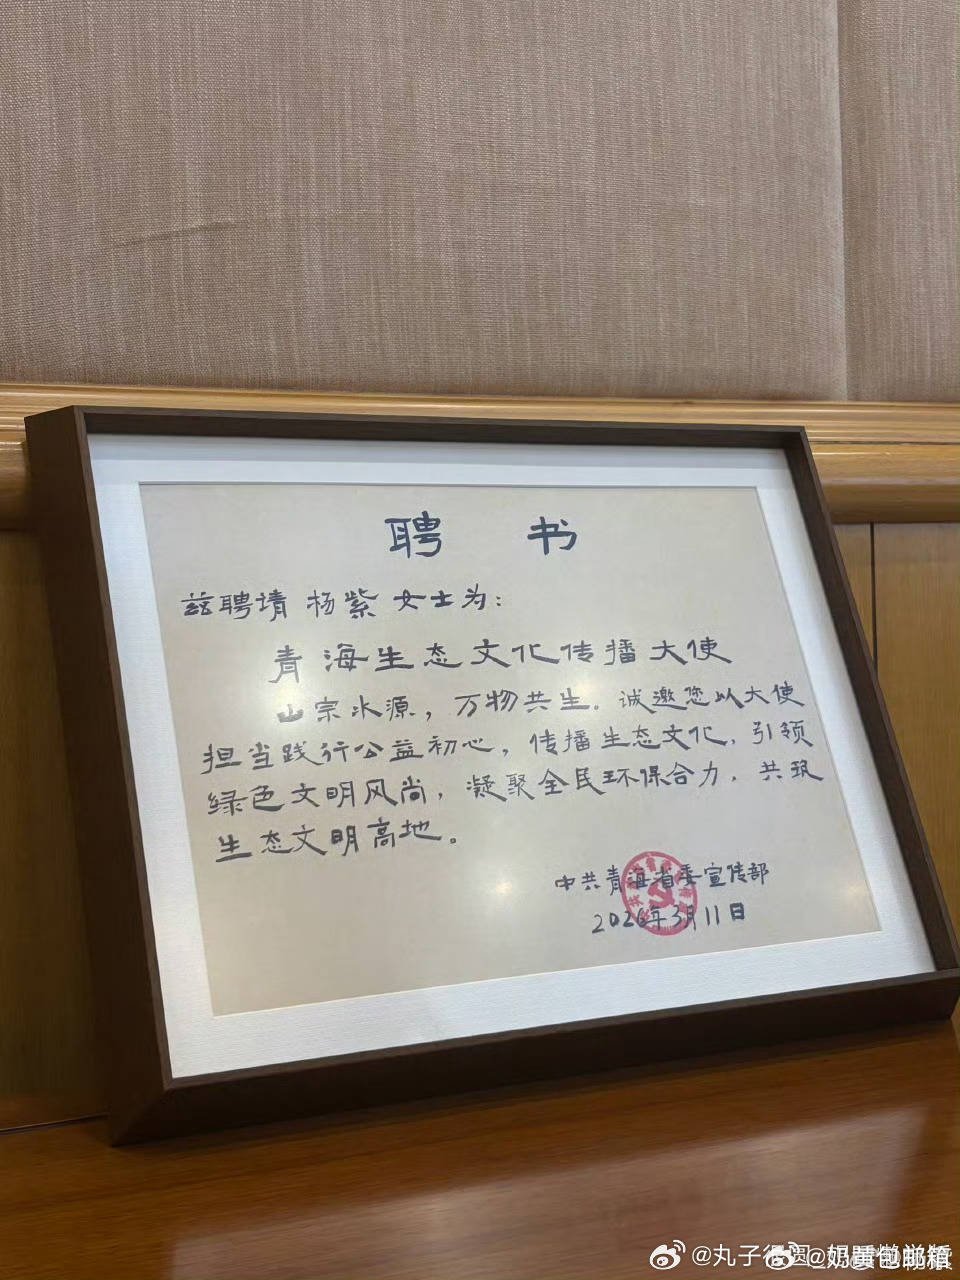 聘书
兹聘请 杨紫 女士为：
青海生态文化传播大使
山宗水源，万物共生。诚邀您以大使
担当践行公益初心，传播生态文化，引领
绿色文明风尚，凝聚全民环保合力，共筑
生态文明高地。
中共青海省委宣传部
2026年3月11日